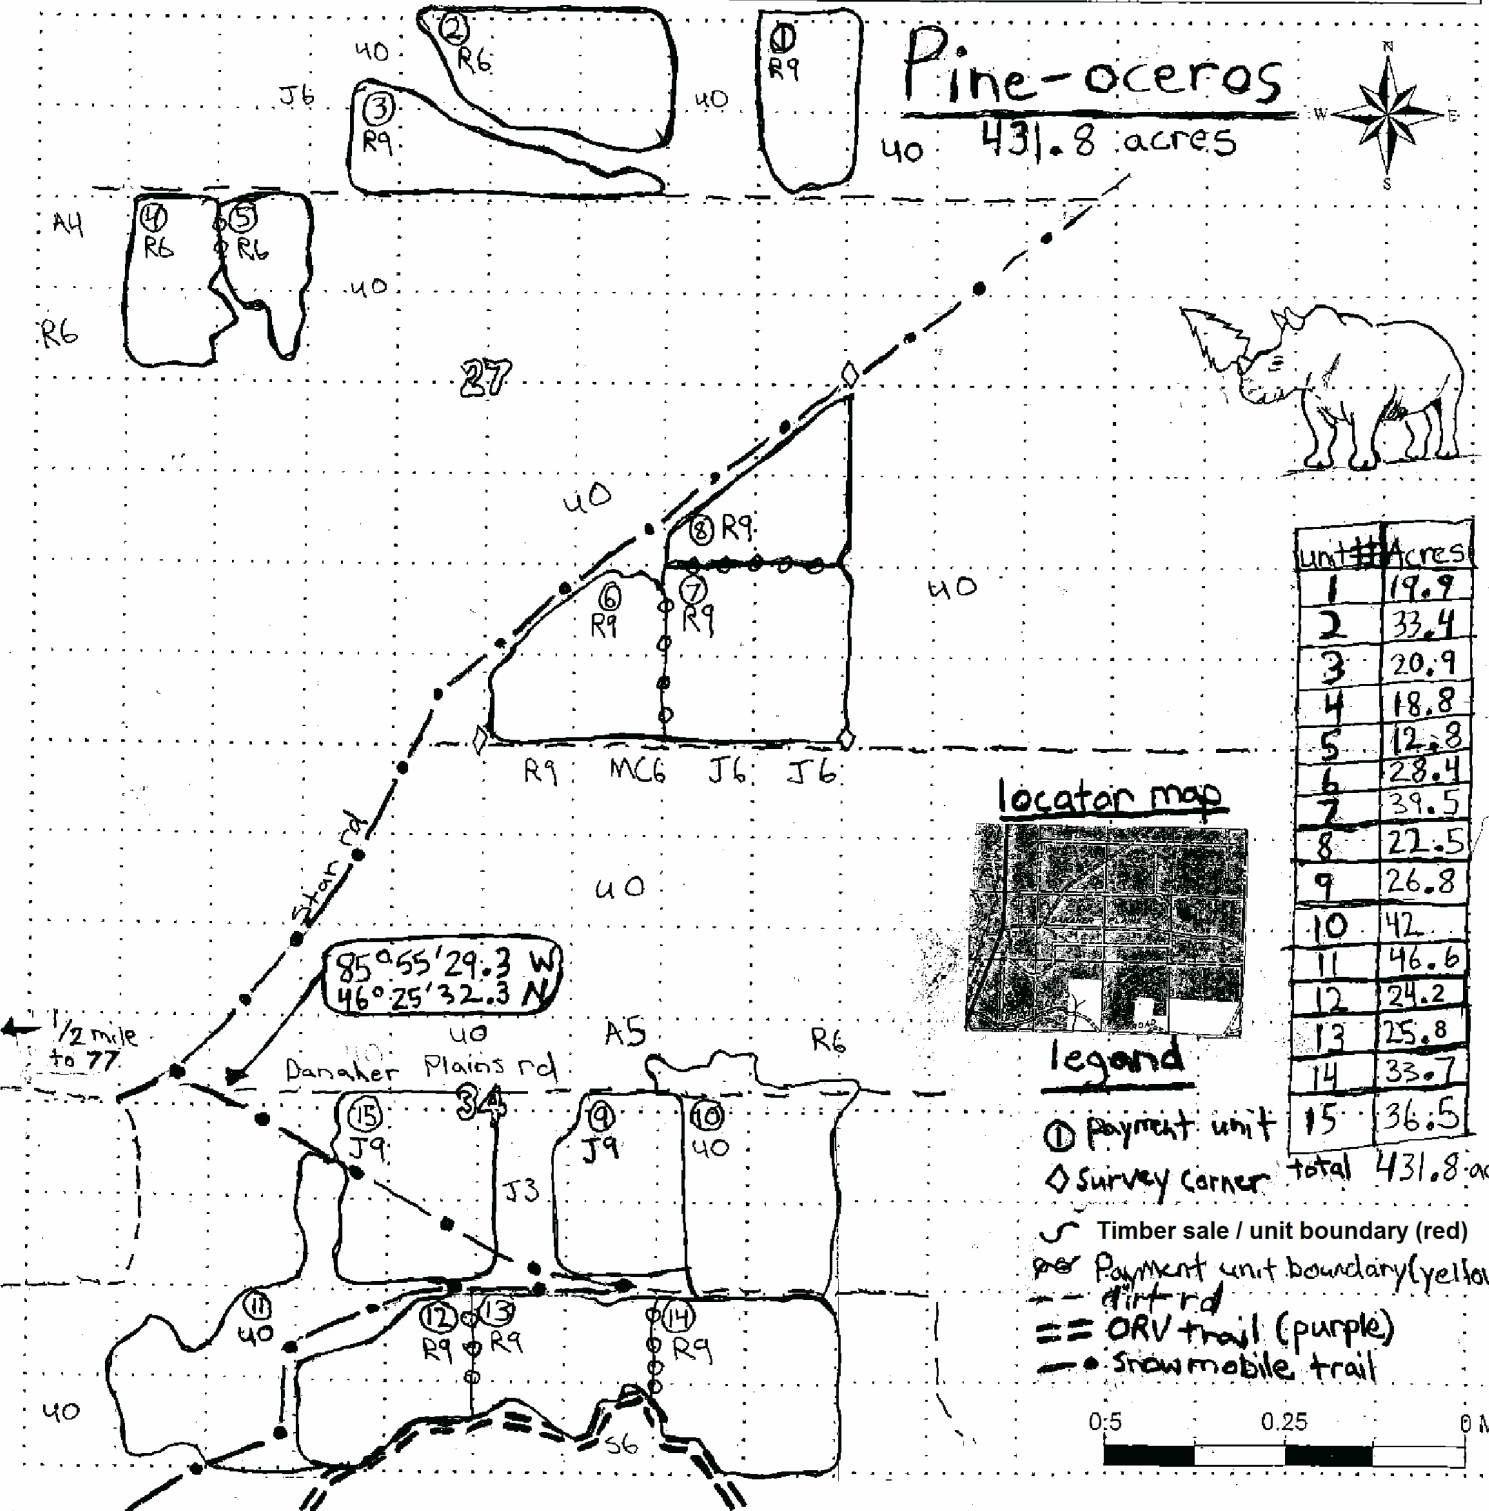 Pine-oceros
431.8 acres
N
W
E
S
② R6
40
J6
③ R9
40
① R9
40
A4
④ R6
⑤ R6
40
R6
27
40
⑧ R9
⑥ R9
⑦ R9
40
R9 MC6 J6 J6
Star rd
40
85°55'29.3 W
46°25'32.3 N
1/2 mile
to 77
40
A5
R6
Danaher Plains rd
34
⑮ J9
J3
⑨ J9
⑩ 40
⑪ 40
⑫ R9
⑬ R9
⑭ R9
40
S6
unit# Acres
1 19.9
2 33.4
3 20.9
4 18.8
5 12.8
6 28.4
7 39.5
8 22.5
9 26.8
10 42
11 46.6
12 24.2
13 25.8
14 33.7
15 36.5
total 431.8 ac
locator map
legand
① payment unit
survey corner
Timber sale / unit boundary (red)
Payment unit boundary (yellow
dirt rd
ORV trail (purple)
snowmobile trail
0.5 0.25 0 M